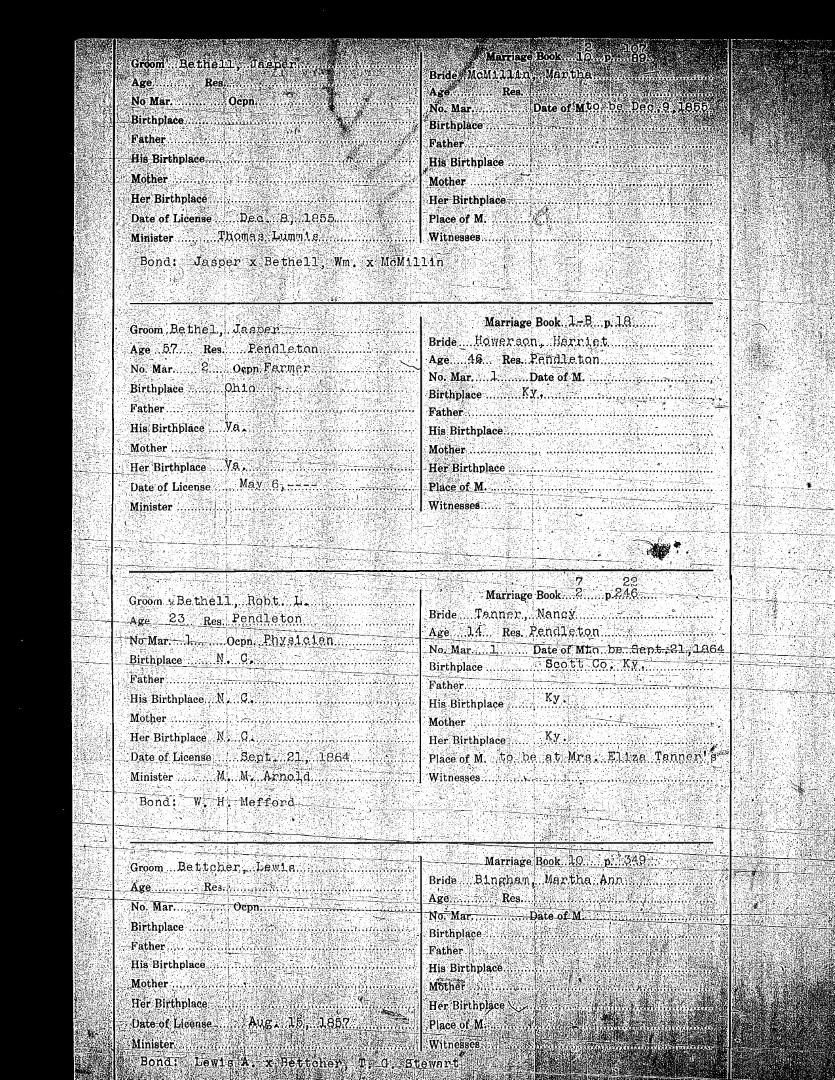 Groom Bethell, Jasper
Age Res.
No Mar. Ocpn.
Birthplace
Father
His Birthplace
Mother
Her Birthplace
Date of License Dec. 8, 1855
Minister Thomas Lummis
Bond: Jasper x Bethell, Wm. x McMillin
2 107
Marriage Book 10 p. 69
Bride McMillin, Martha
Age Res.
No. Mar. Date of M. to be Dec. 9, 1855
Birthplace
Father
His Birthplace
Mother
Her Birthplace
Place of M.
Witnesses
Groom Bethel, Jasper
Age 57 Res. Pendleton
No. Mar. 2 Ocpn Farmer
Birthplace Ohio
Father
His Birthplace Va.
Mother
Her Birthplace Va.
Date of License May 6,----
Minister
Marriage Book 1-B p. 18
Bride Howerson, Harriet
Age 46 Res. Pendleton
No. Mar. 1 Date of M.
Birthplace Ky.
Father
His Birthplace
Mother
Her Birthplace
Place of M.
Witnesses
Groom Bethell, Robt. L.
Age 23 Res. Pendleton
No Mar. 1 Ocpn. Physician
Birthplace N. C.
Father
His Birthplace N. C.
Mother
Her Birthplace N. C.
Date of License Sept. 21, 1864
Minister M. M. Arnold
Bond: W. H. Mefford
7 22
Marriage Book 2 p. 246
Bride Tanner, Nancy
Age 14 Res. Pendleton
No. Mar. 1 Date of M. to be Sept. 21, 1864
Birthplace Scott Co. Ky.
Father
His Birthplace Ky.
Mother
Her Birthplace Ky.
Place of M. to be at Mrs. Eliza Tanner's
Witnesses
Groom Bettcher, Lewis
Age Res.
No. Mar. Ocpn.
Birthplace
Father
His Birthplace
Mother
Her Birthplace
Date of License Aug. 15, 1857
Minister
Bond: Lewis A. x Bettcher, T. G. Stewart
Marriage Book 10 p. 349
Bride Bingham, Martha Ann
Age Res.
No. Mar. Date of M.
Birthplace
Father
His Birthplace
Mother
Her Birthplace
Place of M.
Witnesses